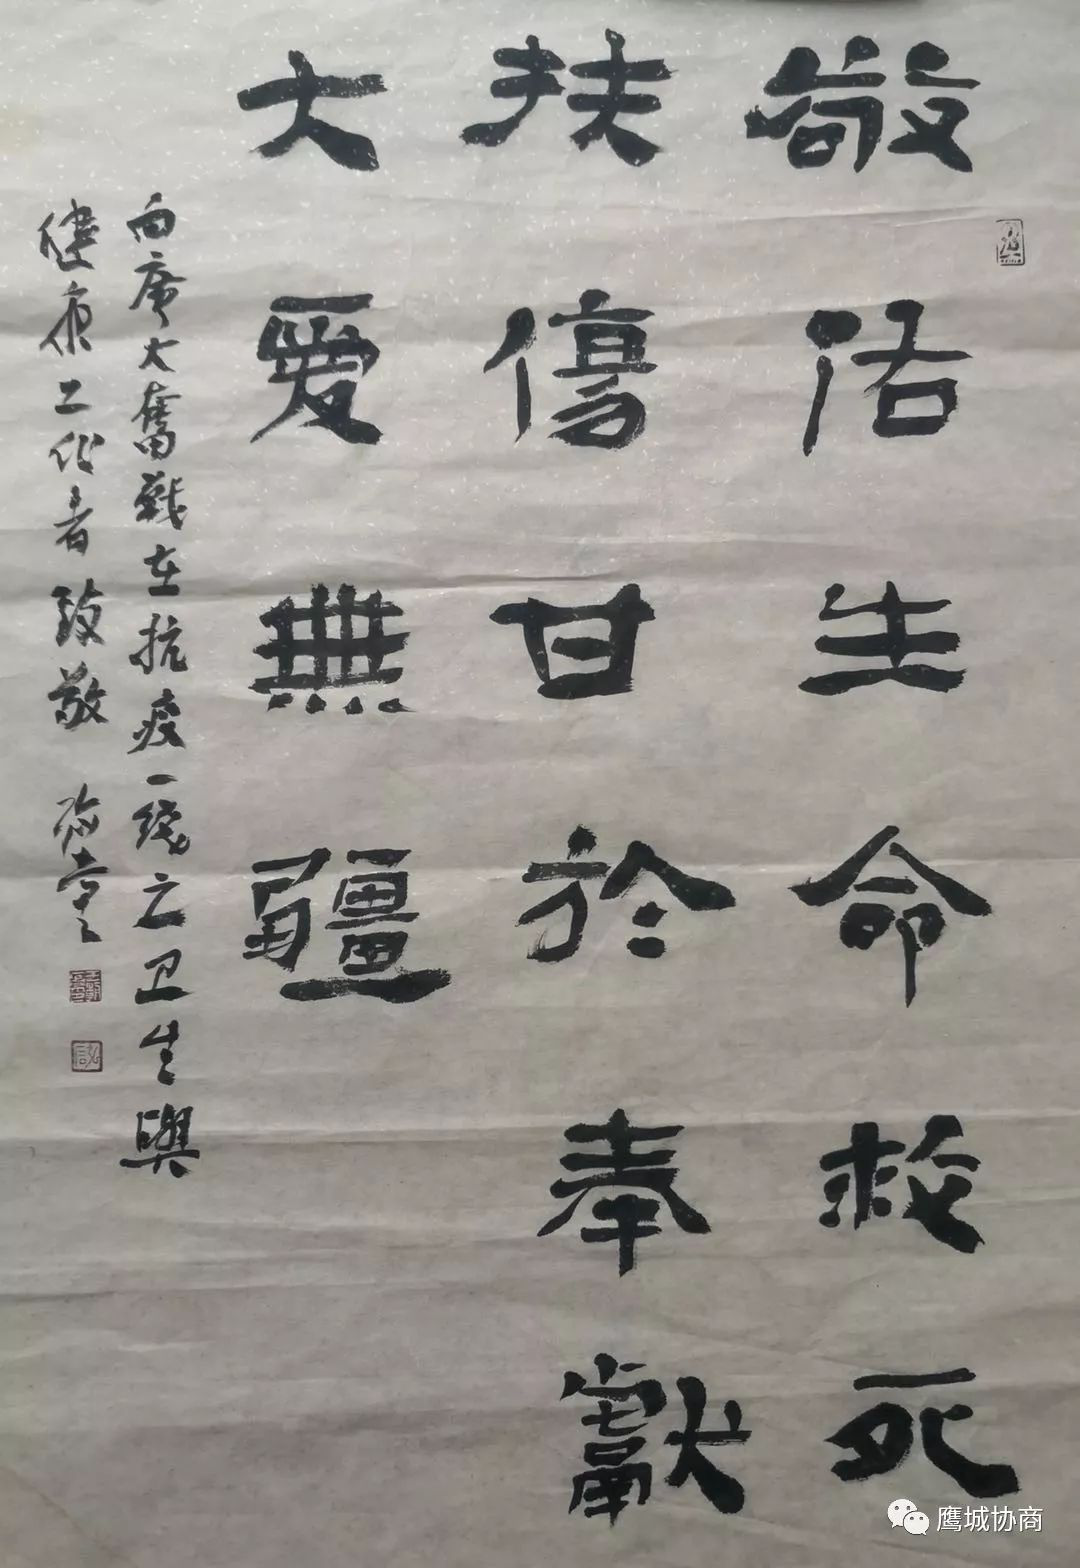 敬佑生命救死
扶傷甘於奉獻
大愛無疆
向廣大奮戰在抗疫一线之卫生與
健康工作者致敬
鹰城协商